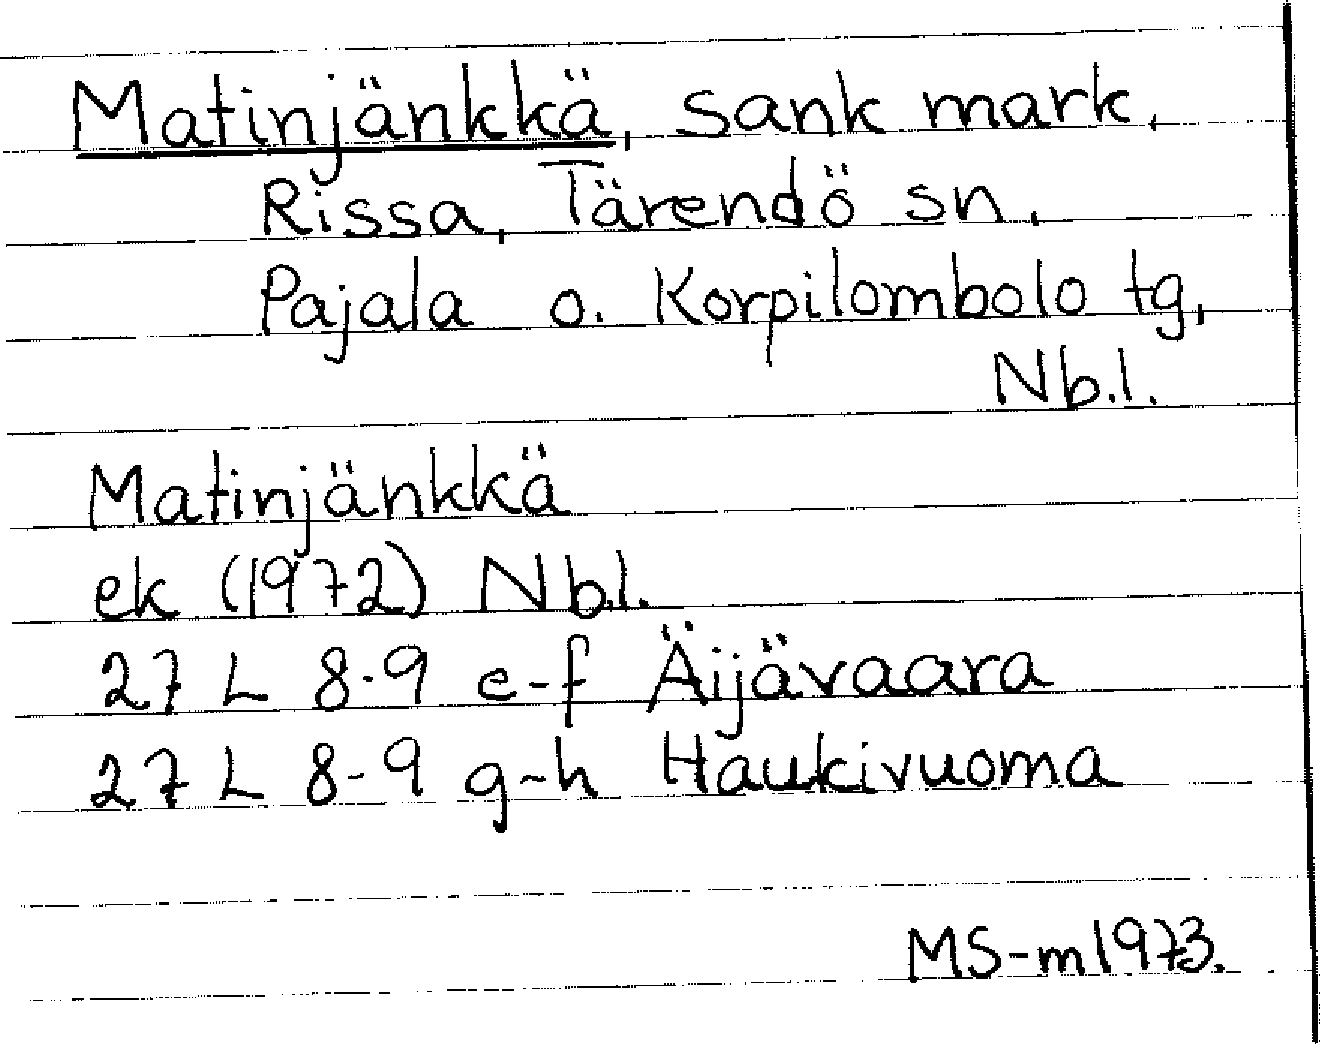 Matinjänkkä, sank mark,
Rissa, Tärendö sn,
Pajala o. Korpilombolo tg,
Nb.l.
Matinjänkkä
ek (1972) Nb.l.
27 L 8-9 e-f Äijävaara
27 L 8-9 g-h Haukivuoma
MS-m1973.